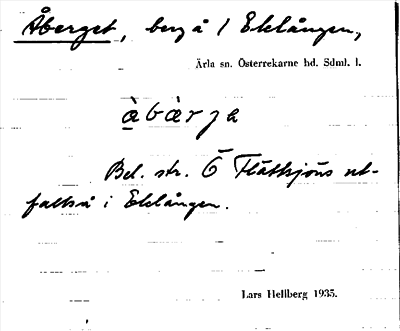 Åberget, berg å / Eklången,
Ärla sn. Österrekarne hd. Sdml. l.
àbàrja
Bel. str. Ö Flätsjöns ut-
fallså i Eklången.
Lars Hellberg 1935.